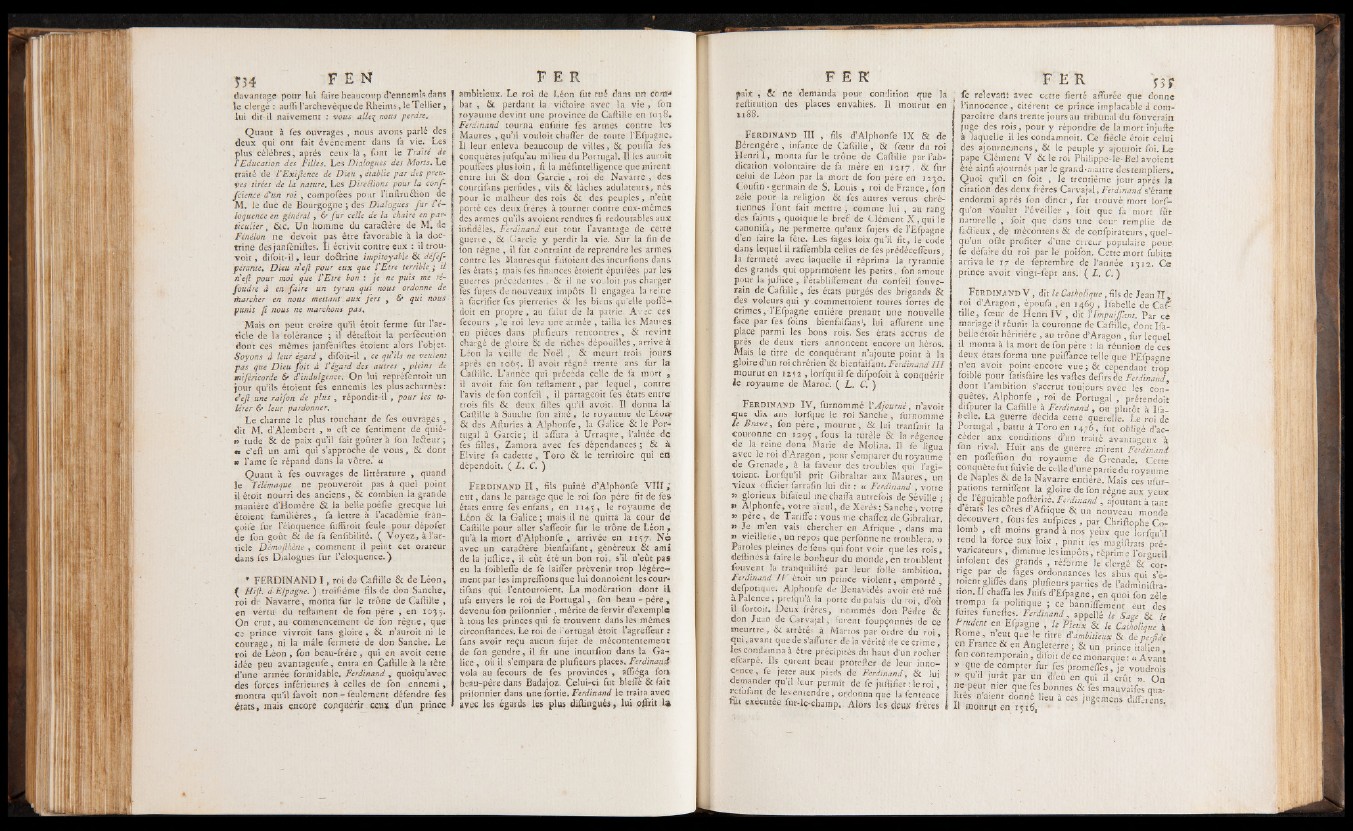 534 FEN
davantage pour lui faire beaucoup d'ennemis dans
le clergé : aussi l'archevêque de Rheims, le Tellier,
lui dit il naivement : vous allez nous perdre.
Quant à ses ouvrages, nous avons parlé des
deux qui ont fait événement dans sa vie. Les
plus célèbres, après ceux là, sont le Traité de
l'Education des Filles. Les Dialogues des Morts. Le
traité de l'Existence de Dieu, établie par des preu-
ves tirées de la nature. Les Directions pour la conf-
science d'un roi, composées pour l'instruction de
M. le duc de Bourgogne ; des Dialogues sur l'é-
loquence en général, & sur celle de la chaire en par-
ticulier, &c. Un homme du caractère de M. de
Fénélon ne devoit pas être favorable à la doc-
trine des jansénistes. Il écrivit contre eux : il trou-
voit, disoit-il, leur doctrine impitoyable & déses-
perante. Dieu n'est pour eux que l'Etre terrible ; il
n'est pour moi que l'Etre bon : je ne puis me ré-
soudre à en faire un tyran qui nous ordonne de
marcher en nous mettant aux fers, & qui nous
punit si nous ne marchons pas.
Mais on peut croire qu'il étoit ferme sur l'ar-
ticle de la tolérance ; il détestoit la persécution
dont ces mêmes jansénistes étoient alors l'objet.
Soyons à leur égard, disoit-il, ce qu'ils ne veulent
pas que Dieu soit à l'égard des autres, pleins de
miséricorde & d'indulgence. On lui représentoit un
jour qu'ils étoient ses ennemis les plus acharnés :
c'est une raison de plus, répondit-il, pour les to-
lérer & leur pardonner.
Le charme le plus touchant de ses ouvrages,
dit M. d'Alembert, » est ce sentiment de quié-
» tude & de paix qu'il fait goûter à son lecteur ;
» c'est un ami qui s'approche de vous, & dont
» l'ame se répand dans la vôtre. «
Quant à ses ouvrages de littérature, quand
le Télémaque ne prouveroit pas à quel point
il étoit nourri des anciens, & combien la grande
manière d'Homère & la belle poësie grecque lui
étoient familières, sa lettre à l'académie fran-
çoise sur l'éloquence suffiroit seule pour déposer
de son goût & de sa sensibilité. ( Voyez, à l'ar-
ticle Démosthène, comment il peint cet orateur
dans ses Dialogues sur l'éloquence. )
* FERDINAND I, roi de Castille & de Léon,
( Hist. d'Espagne. ) troisième fils de don Sanche,
roi de Navarre, monta sur le trône de Castille,
en vertu du testament de son père, en 1035.
On crut, au commencement de son règne, que
ce prince vivroit sans gloire, & n'auroit ni le
courage, ni la mâle fermeté de don Sanche. Le
roi de Léon, son beau-frère, qui en avoit cette
idée peu avantageuse, entra en Castille à la tête
d'une armée formidable. Ferdinand, quoiqu'avec
des forces inférieures à celles de son ennemi,
montra qu'il savoit non-seulement défendre ses
états, mais encore conquérir ceux d'un prince
FER
ambitieux. Le roi de Léon fut tué dans un com-
bat, & perdant la victoire avec la vie, son
royaume devint une province de Castille en 1038.
Ferdinand tourna ensuite ses armes contre les
Maures, qu'il vouloit chasser de toute l'Espagne.
Il leur enleva beaucoup de villes, & poussa ses
conquêtes jusqu'au milieu du Portugal. Il les auroit
poussées plus loin, si la mésintelligence que mirent
entre lui & don Garcie, roi de Navarre, des
courtisans perfides, vils & lâches adulateurs, nés
pour le malheur des rois & des peuples, n'eût
porté ces deux frères à tourner contre eux-mêmes
des armes qu'ils avoient rendues si redoutables aux
infidèles. Ferdinand eut tout l'avantage de cette
guerre, & Garcie y perdit la vie. Sur la fin de
son règne, il fut contraint de reprendre les armes
contre les Maures qui faisoient des incursions dans
ses états ; mais ses finances étoient épuisées par les
guerres précédentes, & il ne vouloit pas charger
ses sujets de nouveaux impôts. Il engagea la reine
à sacrifier ses pierreries & les biens qu'elle possé-
doit en propre, au salut de la patrie. Avec ces
secours, le roi leva une armée, tailla les Maures
en pièces dans plusieurs rencontres, & revint
chargé de gloire & de riches dépouilles, arrive à
Léon la veille de Noël, & meurt trois jours
après en 1065. Il avoit régné trente ans sur la
Castille. L'année qui précéda celle de sa mort,
il avoit fait son testament, par lequel, contre
l'avis de son conseil, il partageoit ses états entre
trois fils & deux filles qu'il avoit. Il donna la
Castille à Sanche son aîné, le royaume de Léon
& des Asturies à Alphonse, la Galice & le Por-
tugal à Garcie ; il assura à Urraque, l'aînée de
ses filles, Zamora avec ses dépendances ; & à
Elvire sa cadette, Toro & le territoire qui en
dépendoit. ( L. C. )
FERDINAND II, fils puîné d'Alphonse VIII,
eut, dans le partage que le roi son père fit de ses
états entre ses enfans, en 1145, le royaume de
Léon & la Galice ; mais il ne quitta la cour de
Castille pour aller s'asseoir sur le trône de Léon,
qu'à la mort d'Alphonse, arrivée en 1157. Né
avec un caractère bienfaisant, généreux & ami
de la justice, il eût été un bon roi, s'il n'eût pas
eu la foiblesse de se laisser prévenir trop légère-
ment par les impressions que lui donnoient les cour-
tisans qui l'entouroient. La modération dont il
usa envers le roi de Portugal, son beau-père,
devenu son prisonnier, mérite de servir d'exemple
à tous les princes qui se trouvent dans les mêmes
circonstances. Le roi de Portugal étoit l'agresseur :
sans avoir reçu aucun sujet de mécontentement
de son gendre, il fit une incursion dans la Ga-
lice, où il s'empara de plusieurs places. Ferdinand
vola au secours de ses provinces, assiégea son
beau-père dans Badajoz. Celui-ci fut blessé & fait
prisonnier dans une sortie. Ferdinand le traita avec
avec les égards les plus distingués, lui offrit la
FER
paix, & ne demanda pour condition que la
restitution des places envahies. Il mourut en
1188.
FERDINAND III, fils d'Alphonse IX & de
Bérengère, infante de Castille, & sœur du roi
Henri I, monta sur le trône de Castille par l'ab-
dication volontaire de sa mère en 1217, & sur
celui de Léon par la mort de son père en 1230.
Cousin-germain de S. Louis, roi de France, son
zèle pour la religion & ses autres vertus chré-
tiennes l'ont fait mettre, comme lui, au rang
des saints, quoique le bref de Clément X, qui le
canonisa, ne permette qu'aux sujets de l'Espagne
d'en faire la fête. Les sages loix qu'il fit, le code
dans lequel il rassembla celles de ses prédécesseurs,
la fermeté avec laquelle il réprima la tyrannie
des grands qui opprimoient les petits, son amour
pour la justice, l'établissement du conseil souve-
rain de Castille, ses états purgés des brigands &
des voleurs qui y commettoient toutes sortes de
crimes, l'Espagne entière prenant une nouvelle
face par ses soins bienfaisans, lui assurent une
place parmi les bons rois. Ses états accrus de
près de deux tiers annoncent encore un héros.
Mais le titre de conquérant n'ajoute point à la
gloire d'un roi chrétien & bienfaisant. Ferdinand III
mourut en 1252, lorsqu'il se disposoit à conquérir
le royaume de Maroc. ( L. C. )
FERDINAND IV, surnommé l'Ajourné, n'avoit
que dix ans lorsque le roi Sanche, surnommé
le Brave, son père, mourut, & lui transmit la
couronne en 1295, sous la tutèle & la régence
de la reine dona Marie de Molina. Il se ligua
avec le roi d'Aragon, pour s'emparer du royaume
de Grenade, à la faveur des troubles qui l'agi-
toient. Lorsqu'il prit Gibraltar aux Maures, un
vieux officier sarrasin lui dit : « Ferdinand, votre
» glorieux bisaïeul me chassa autrefois de Séville ;
» Alphonse, votre aïeul, de Xerès ; Sanche, votre
» père, de Tariffe : vous me chassez de Gibraltar.
» Je m'en vais chercher en Afrique, dans ma
» vieillesse, un repos que personne ne troublera. »
Paroles pleines de sens qui font voir que les rois,
destinés à faire le bonheur du monde, en troublent
souvent la tranquillité par leur folle ambition.
Ferdinand IV étoit un prince violent, emporté,
despotique. Alphonse de Benavidès avoit été tué
à Palence, presqu'à la porte du palais du roi, d'où
il sortoit. Deux frères, nommés don Pèdre &
don Juan de Carvajal, furent soupçonnés de ce
meurtre, & arrêtés à Martos par ordre du roi,
qui, avant que de s'assurer de la vérité de ce crime,
les condamna à être précipités du haut d'un rocher
escarpé. Ils eurent beau protester de leur inno-
cence, se jeter aux pieds de Ferdinand, & lui
demander qu'il leur permît de se justifier : le roi,
refusant de les entendre, ordonna que la sentence
fût exécutée sur-le-champ. Alors les deux frères
FER 535
se relevant avec cette fierté assurée que donne
l'innocence, citèrent ce prince implacable à com-
paroître dans trente jours au tribunal du souverain
juge des rois, pour y répondre de la mort injuste
à laquelle il les condamnoit. Ce siècle étoit celui
des ajournemens, & le peuple y ajoutoit foi. Le
pape Clément V & le roi Philippe-le-Bel avoient
été ainsi ajournés par le grand-maître des templiers.
Quoi qu'il en soit, le trentième jour après la
citation des deux frères Carvajal, Ferdinand s'étant
endormi après son dîner, fut trouvé mort lors-
qu'on voulut l'éveiller, soit que sa mort fût
naturelle, soit que dans une cour remplie de
factieux, de mécontens & de conspirateurs, quel-
qu'un osât profiter d'une erreur populaire pour
se défaire du roi par le poison. Cette mort subite
arriva le 17 de septembre de l'année 1312. Ce
prince avoit vingt-sept ans. ( L. C. )
FERDINAND V, dit le Catholique, fils de Jean II,
roi d'Aragon, épousa, en 1469, Isabelle de Cas-
tille, sœur de Henri IV, dit l'Impuissant. Par ce
mariage il réunit la couronne de Castille, dont Isa-
belle étoit héritière, au trône d'Aragon, sur lequel
il monta à la mort de son père : la réunion de ces
deux états forma une puissance telle que l'Espagne
n'en avoit point encore vue ; & cependant trop
foible pour satisfaire les vastes desirs de Ferdinand,
dont l'ambition s'accrut toujours avec les con-
quêtes. Alphonse, roi de Portugal, prétendoit
disputer la Castille à Ferdinand, ou plutôt à Isa-
belle. La guerre décida cette querelle. Le roi de
Portugal, battu à Toro en 1476, fut obligé d'ac-
céder aux conditions d'un traité avantageux à
son rival. Huit ans de guerre mirent Ferdinand
en possession du royaume de Grenade. Cette
conquête fut suivie de celle d'une partie du royaume
de Naples & de la Navarre entière. Mais ces usur-
pations ternissent la gloire de son règne aux yeux
de l'équitable postérité. Ferdinand, ajoutant à tant
d'états les côtes d'Afrique & un nouveau monde
découvert, sous ses auspices, par Christophe Co-
lomb, est moins grand à nos yeux que lorsqu'il
rend la force aux loix, punit les magistrats pré-
varicateurs, diminue les impôts, réprime l'orgueil
insolent des grands, réforme le clergé & cor-
rige par de sages ordonnances les abus qui s'é-
toient glissés dans plusieurs parties de l'administra-
tion. Il chassa les Juifs d'Espagne, en quoi son zèle
trompa sa politique ; ce bannissement eut des
suites funestes. Ferdinand, appellé le Sage & le
Prudent en Espagne, le Pieux & le Catholique à
Rome, n'eut que le titre d'ambitieux & de perfide
en France & en Angleterre ; & un prince italien,
son contemporain, disoit de ce monarque : « Avant
» que de compter sur ses promesses, je voudrois
» qu'il jurât par un dieu en qui il crût ». On
ne peut nier que ses bonnes & ses mauvaises qua-
lités n'aient donné lieu à ces jugemens différens.
Il mourut en 1516,